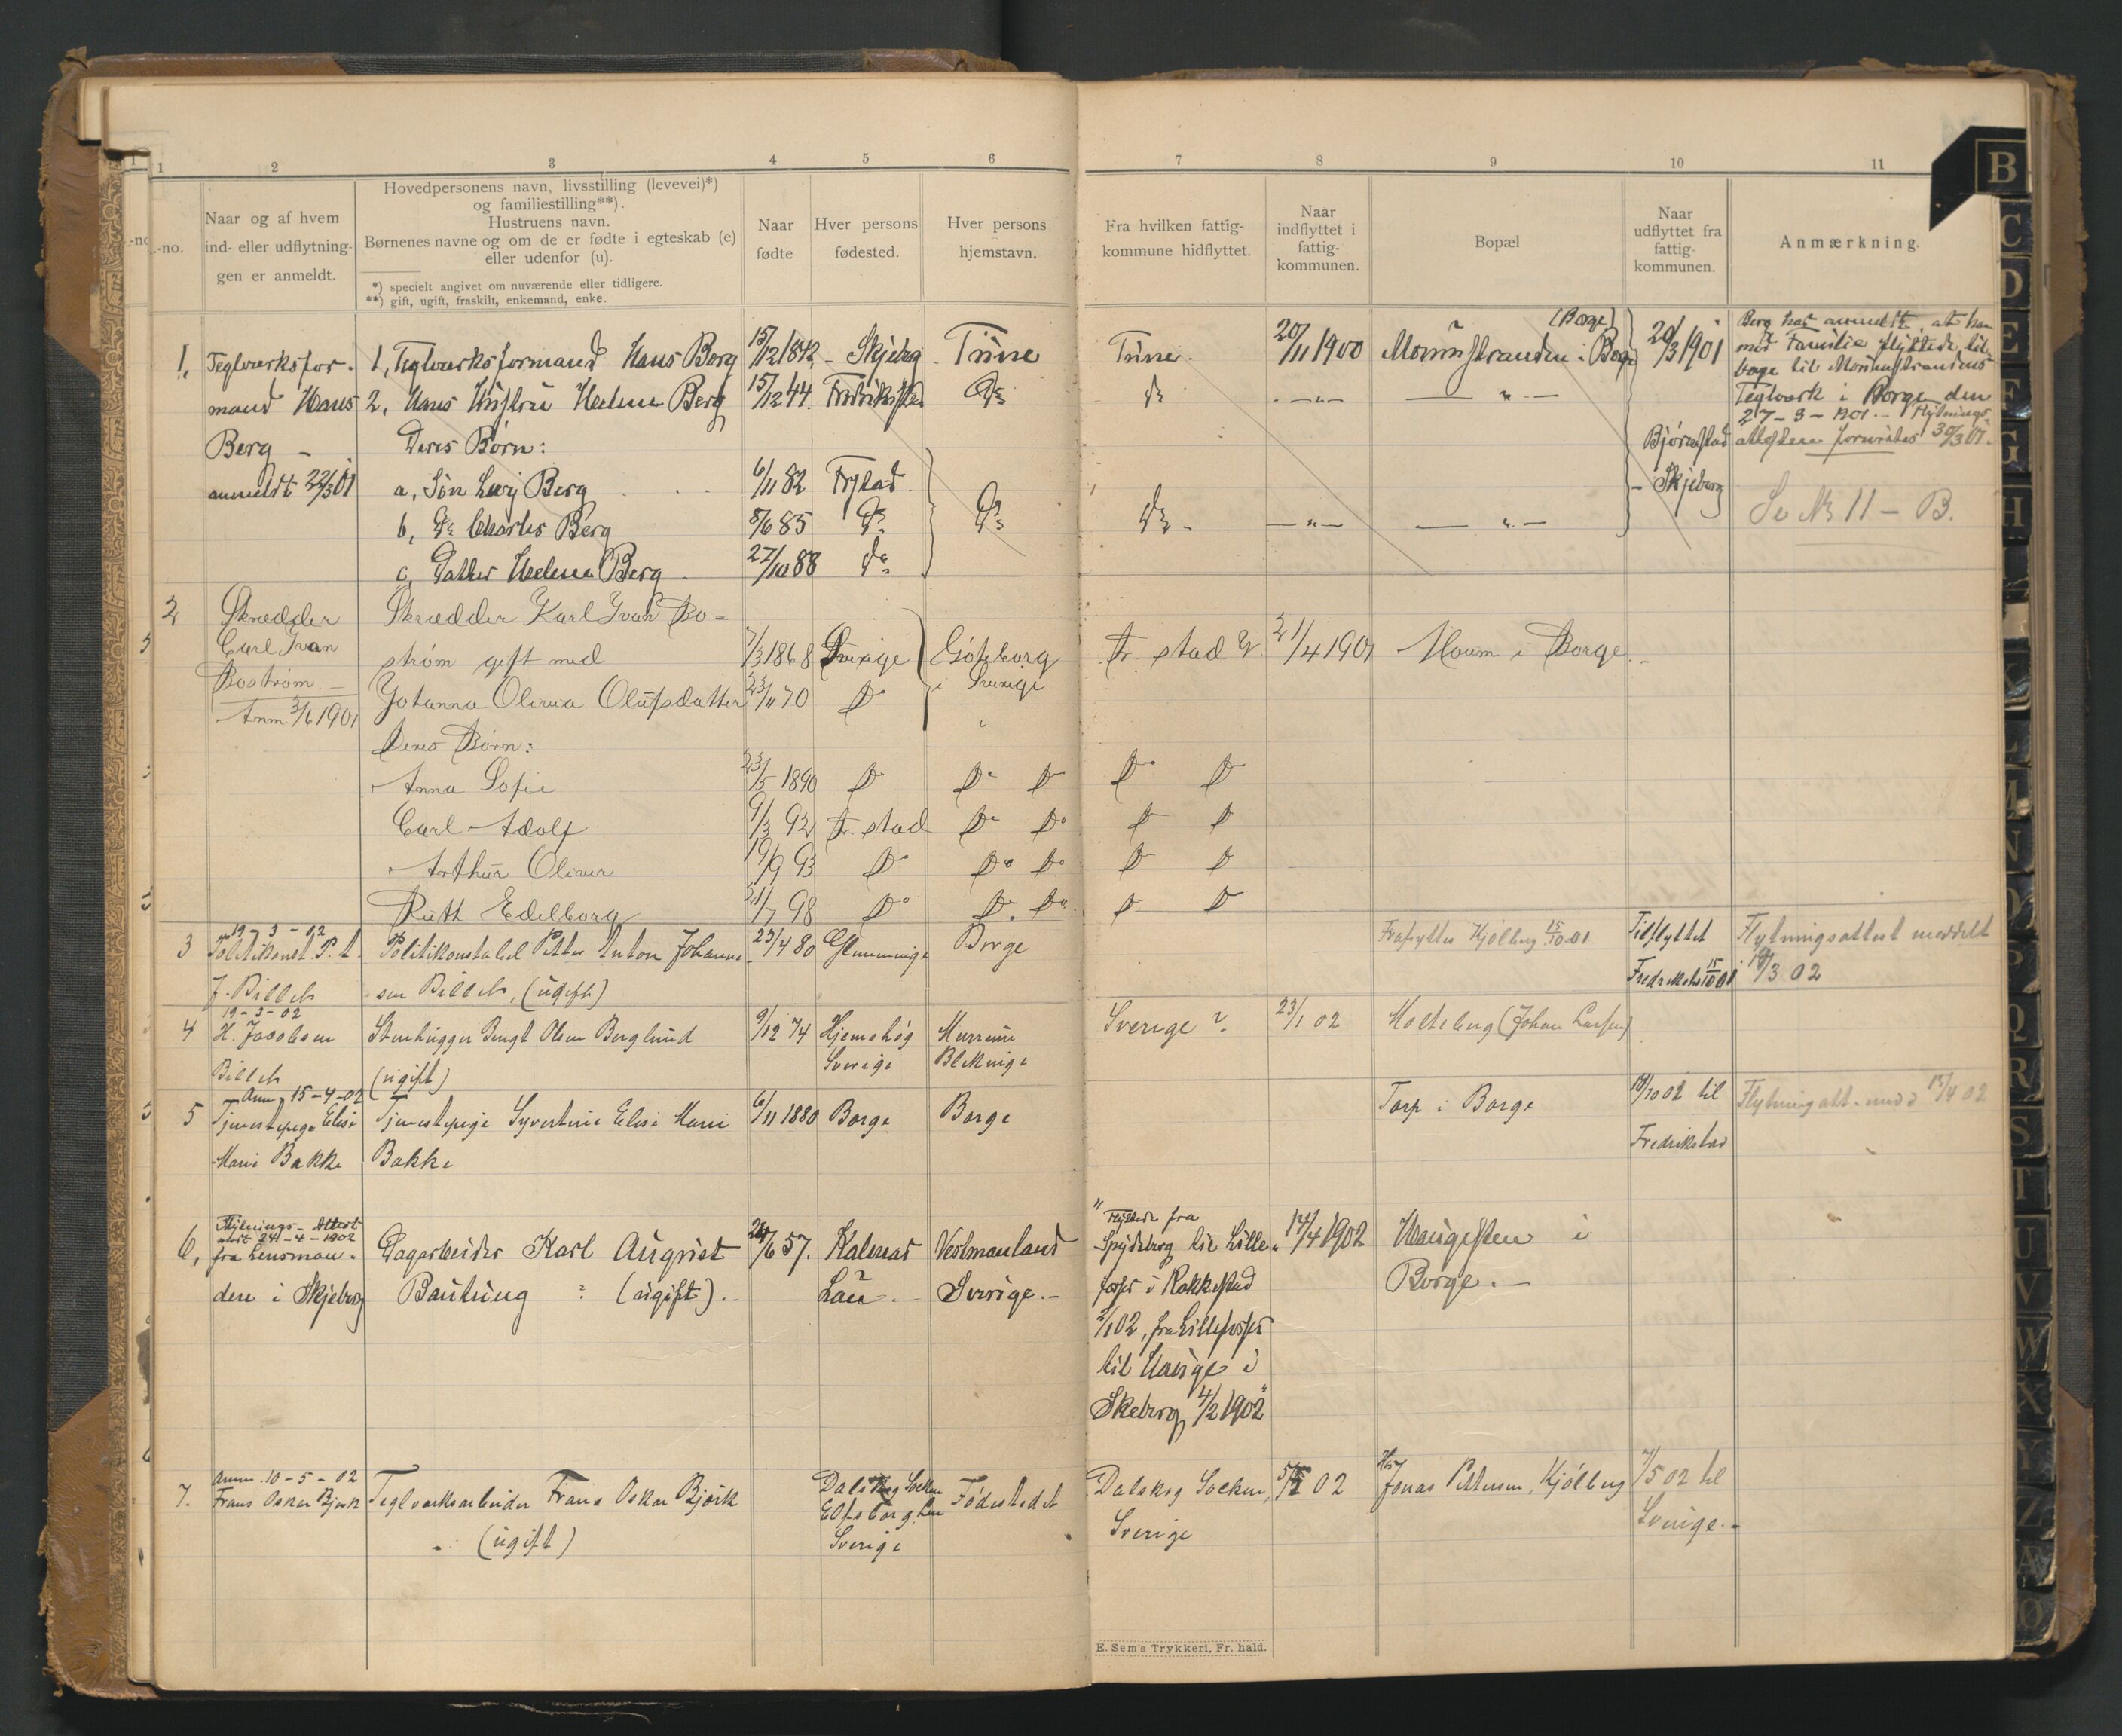 1 2 3 4 5 6 7 8 9 10 11
-no.
Naar og af hvem
ind- eller udflytnin-
gen er anmeldt.
Hovedpersonens navn, livsstilling (levevei)*)
og familiestilling**).
Hustruens navn.
Børnenes navne og om de er fødte i egteskab (e)
eller udenfor (u).
*) specielt angivet om nuværende eller tidligere.
**) gift, ugift, fraskilt, enkemand, enke.
Naar
fødte
Hver persons
fødested.
Hver persons
hjemstavn.
Fra hvilken fattig-
kommune hidflyttet.
Naar
indflyttet i
fattig-
kommunen.
Bopæl
Naar
udflyttet fra
fattig-
kommunen.
Anmærkning.
1, Teglværksfor-
mand Hans
Berg
anmeldt 22/3 01
1, Teglværksformand Hans Berg 15/12 1842 Skjeberg Tune
2, Hans Hustru Helene Berg 15/12 44. Do
Deres Børn:
a, Søn Berg 6/11 82
b, Do Charles Berg 8/6 85 Do Do
c, Datter Helene Berg 27/10 88 do
Tune. 20/11 1900 i Borge (Borge) 20/3 1901
do
do
Bjørnstad
Skjeberg
Berg har anmeldt, at han
med Familie flyttede til-
bage til
Teglværk i Borge den
27-3-1901. - Flytnings-
attesten forevistes 30/3 01.
Se No 11 - B.
2 Skrædder
Carl Ivan
Bostrøm.
Anm. 3/6 1901
Skrædder Karl Ivan Bo-
strøm gift med 7/3 1868 Sverige Göteborg
i Sverige
Johanna Olivia Olufsdatter 23/11 70 Do
Deres Børn:
Anna Sofie 23/5 1890 Do Do Do
Carl Adolf 9/3 92 Fr. stad Do Do
Arthur Oliver 19/9 93 Do Do Do
Ruth Edelborg 21/7 98 Do Do Do
Fr. stad 21/4 1901 Moum i Borge
Do Do
Do Do
Do Do
Do Do
3 19-3-02
Politikonst. P. A.
J. Billet
Politikonstabel Petter Anton Johanne-
sen Billet, (ugift)
23/4 80 Glemminge Borge
Fraflyttet Kjølberg 15/10-01
Tilflyttet
Fredrikstad 15/10 01
Flytningsattest meddelt
19/3 02
4 19-3-02
H. Jacobsen
Billet
Stenhugger Bengt Olsen Berglund
(ugift)
9/12 74 Hjemshög
Sverige
Blekinge
Sverige ?. 23/1 02 (Johan Larsen)
5 Anm. 15-4-02
Tjenestepige Elise
Marie Bakke
Tjenestepige Syvertine Elise Marie
Bakke
6/11 1880 Borge Borge
Torp i Borge
02 til
Fredrikstad
15/4 02
6, Flytnings-Attest
24-4-1902
fra Lensman-
den i Skjeberg
Dagarbeider Karl August
(ugift).
/6 57. Kalmar
Län. Vestmanland
Sverige.
"Flyttede fra
Spydeberg til Lille-
foss i Rakkestad
2/1 02, fra Lillefoss
til Hauge i
Skeberg 4/2 1902"
12/4 1902 Haugesten i
Borge.
7. Anm. 10-5-02
Frans Oskar Bjørk
Teglværksarbeider Frans Oskar Bjørk
(ugift)
Dalskog Socken
Elfsborg Len
Sverige
Fødestedet
Dalskog Socken,
Sverige
02 Hos
Jonas Pettersen, Kjølberg
7/5 02 til
Sverige.
E. Sem's Trykkeri, Fr. hald.
B
C
D
E
F
G
H
K
L
M
N
O
P
Q
R
S
T
U
V
W
X
Y
Z
Æ
Ø